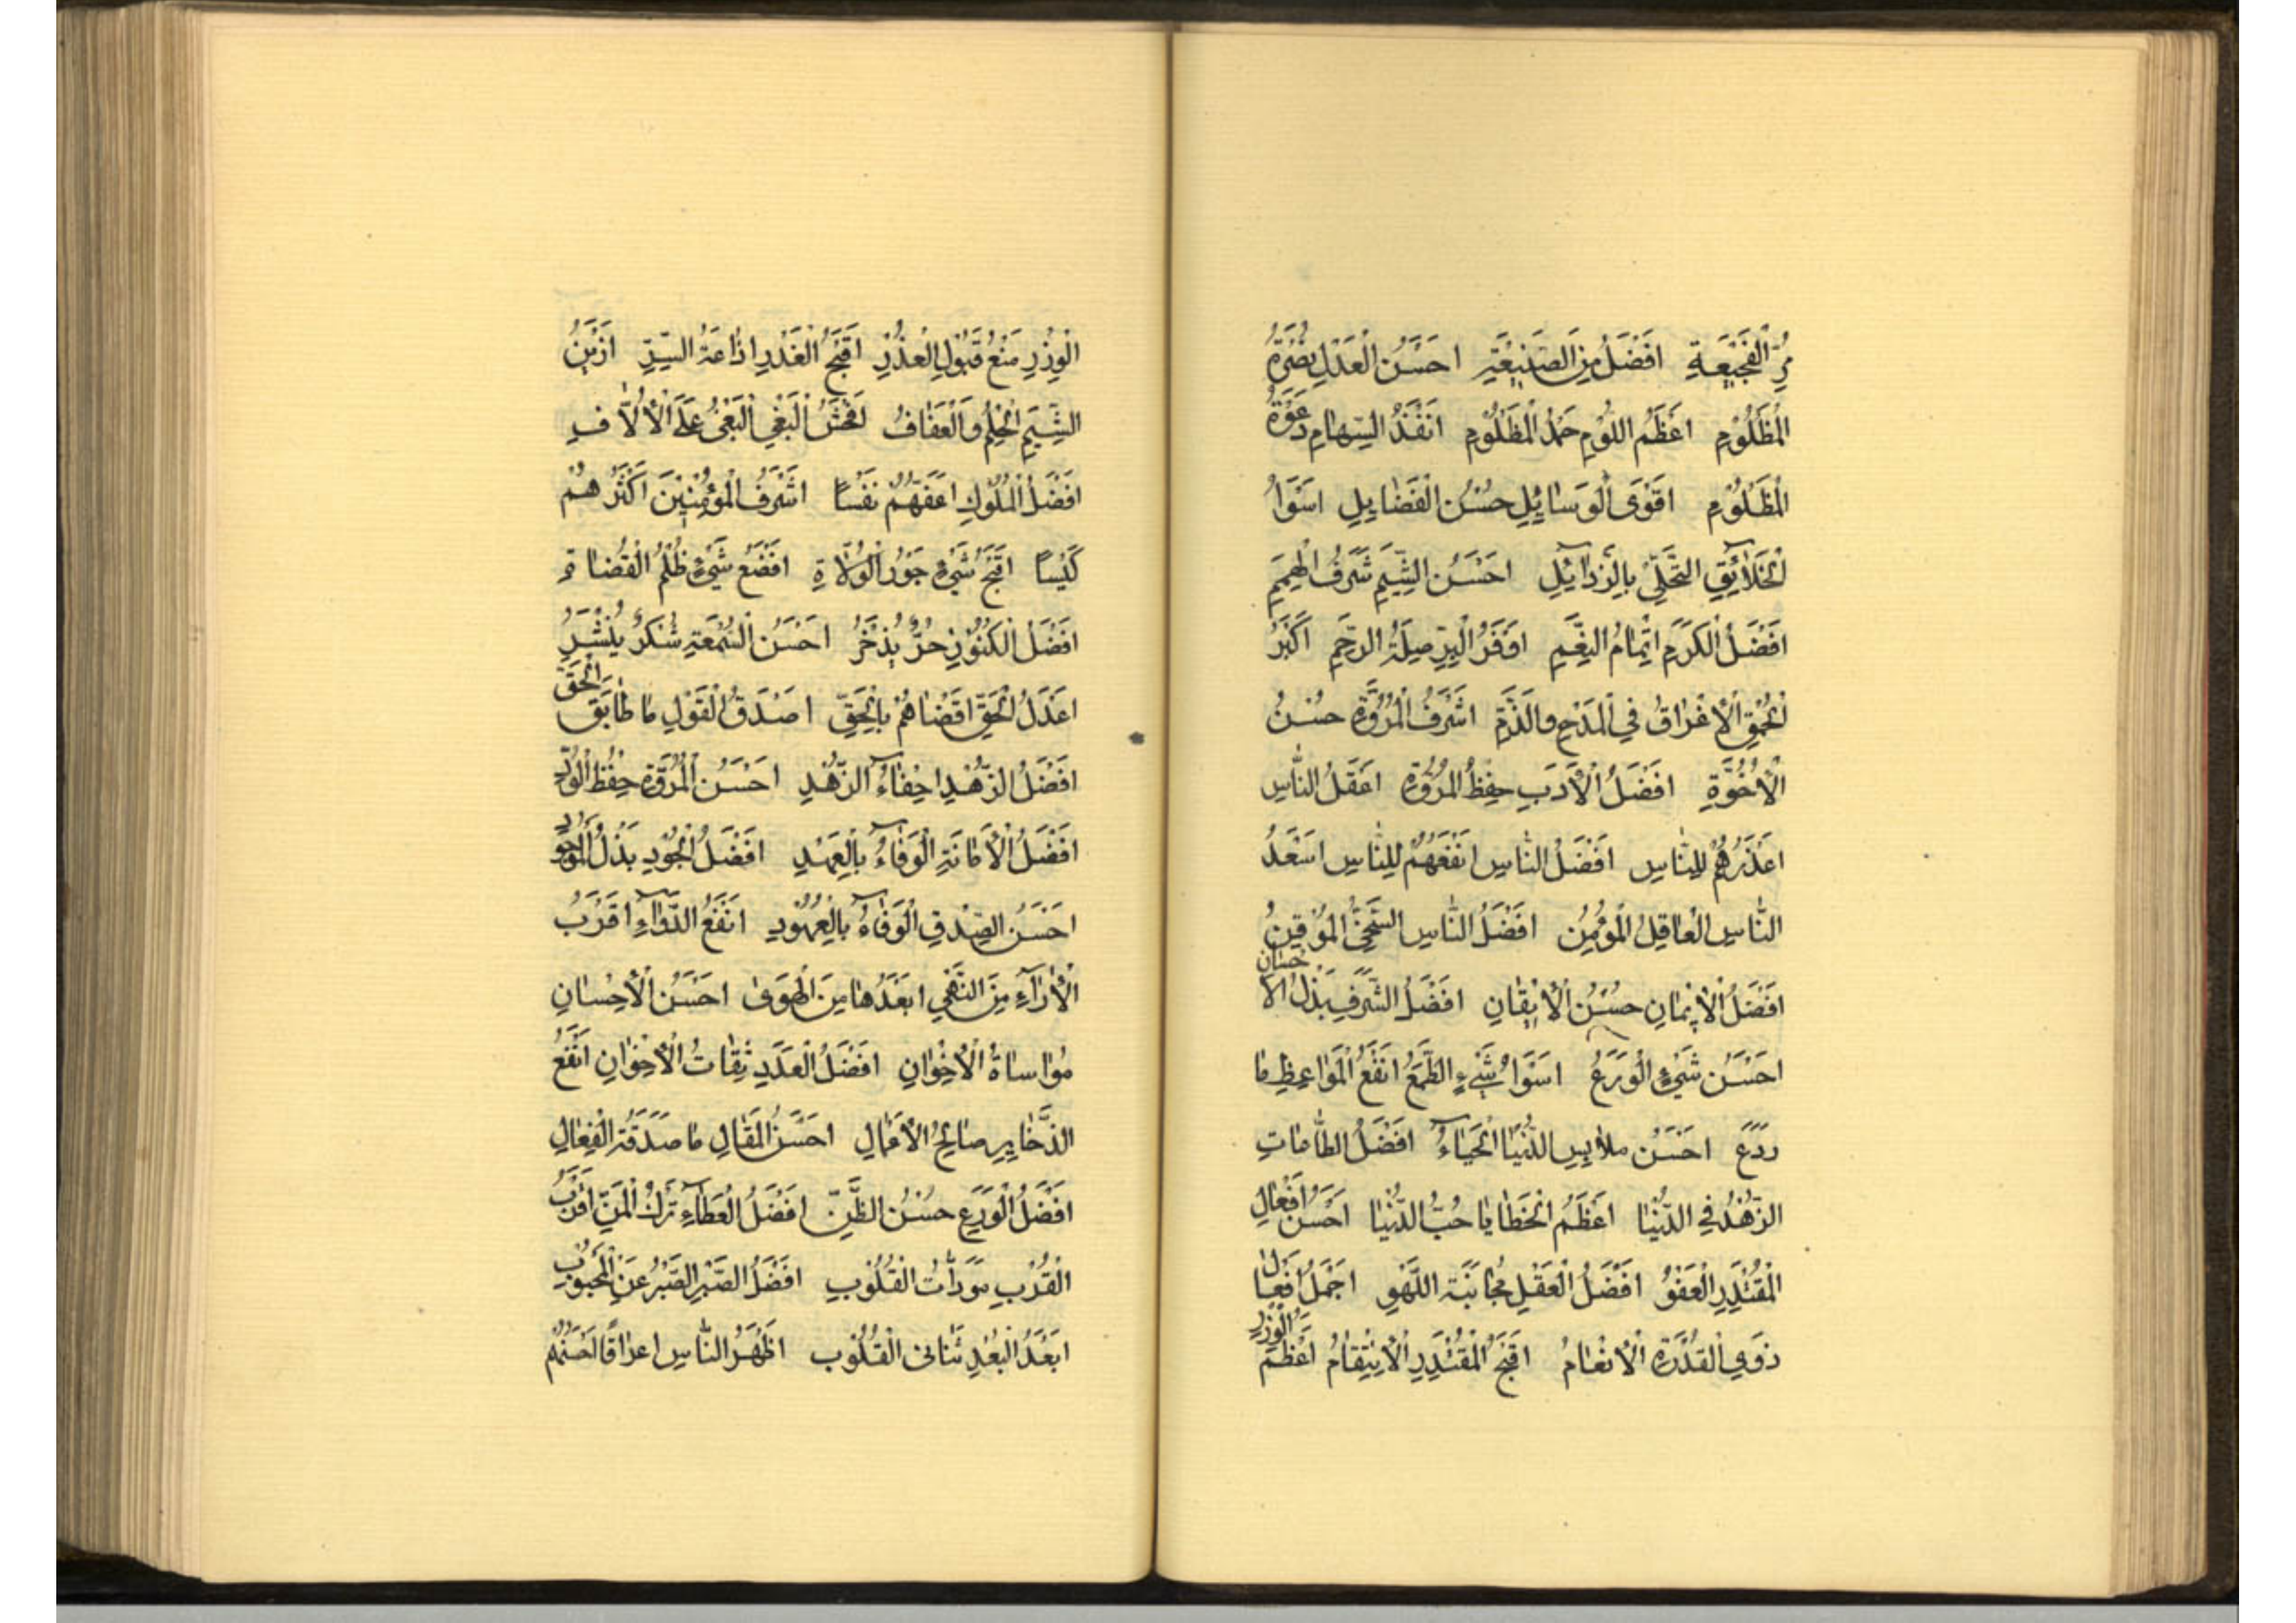 مُرِّ الْفَجِيعَةِ افْضَلُ مِنَ الصَنِيعَةِ احَسَنُ الْعَدْلِ نُصْرَةُ
الْمَظْلُومِ اعْظَمُ اللَوْمِ حَمْدُ الْمَظْلُومِ انَفَذُ السِهامِ دَعْوَةُ
الْمَظْلُومِ اقَوْىَ الْوَسَائِلِ حُسْنُ الْفَضَايِلِ اسَوَاُ
الْخَلائِقِ التَّحَلّي بِالرَذآئِلِ احَسَنُ الشِّيَمِ شَرَفُ الْهِمَمِ
افَضَلُ الْكَرَمِ اتِمْامُ النِعَمِ اوَفَرُ الْبِرِّ صِلَةُ الرَحِمِ اكَبَرُ
الْحُمْقِ الْاغْراقُ في الْمَدْحِ والَذَمِّ اشَرَفُ الْمُرُوَّةِ حسُنُ
الْاُخُوَّةِ افَضَلُ الْأَدَبِ حِفِظُ الْمُرُوَّةِ اعَقَلُ النّاسِ
اعَذَرُهُمْ لِلنّاسِ افَضَلُ النّاسِ انَفَعَهُمْ لِلنّاسِ اسَعَدُ
النّاسِ الْعاقِلُ الْمُؤْمِنُ افَضَلُ النّاسِ السَّخِيُّ الْمُوْقِنُ
افَضَلُ الْايْمانِ حسُنُ الْايْقانِ افَضَلُ الشَّرَفِ بَذْلُ الْاحسْانِ
احَسَنُ شَيْءٍ الْوَرَعُ اسَوَاُ شَيْءٍ الطَّمَعُ انَفَعُ الْمَوَاعِظِ مٰا
رَدَعَ احَسَنُ ملابِسِ الدُّنْيَا الْحَيٰآءُ افَضَلُ الطّاعٰاتِ
الزُهْدُ فِي الدُّنْيٰا اعَظَمُ الْخَطايا حُبُّ الدُّنْيٰا احَسَنُ افَعْالِ
الْمُقْتَدِرِ الْعَفْوُ افَضَلُ الْعَقْلِ مُجٰانَبَةُ اللَّهْوِ اجَمَلُ افَعْالِ
ذَوِي الْقُدْرَةِ الْانْعٰامُ اقَبَحُ الْمُقْتَدِرِ الْاِنْتِقٰامُ اعْظَمُ الْوِزْرِ
الْوِزْرِ مَنْعُ قَبُوْلِ الْعُذْرِ اقَبَحُ الْغَدْرِ اذٰاعَةُ السِّرِّ ازَيْنُ
الشِّيَمِ الْحِلْمُ وَالْعَفٰافُ افَحْشُ الْبَغْيِ الْبَغْىُ عَلَى الْأُلّافِ
افَضَلُ الْمُلُوكِ اعَفَّهُمْ نفَسْاً اشَرَفُ الْمؤُمِنِيْنَ اكَثَرُ هُمْ
كَيْسًا اقَبَحُ شَيْءٍ جَوْرُ الْوُلٰاةِ افَضَعُ شَيْءٍ ظُلْمُ الْقُضٰاةِ
افَضَلُ الْكُنُوْزِ حُرٌّ يُدْخَرُ احَسَنُ السُمْعَةِ شُكْرٌ يُنْشَرُ
اعَدَلُ الْخَلْقِ اقَضْاهُمْ بِالْحَقِّ اصَدَقُ الْقَوْلِ مٰا طٰابَقَ الْحَقَّ
افَضَلُ الزُهْدِ اخِفْآءُ الزُهْدِ احَسَنُ الْمُرُوَّةِ حِفْظُ الْوُدِّ
افَضَلُ الْأَمٰانَةِ الْوَفٰآءُ بِالْعَهْدِ افَضَلُ الْجُوْدِ بَذْلُ الْمَوْجُودِ
احَسَنُ الصِدْقِ الْوَفٰآءُ بِالْعُهُوْدِ انَفَعُ الدَّوٰآءِ اقَرَبُ
الْاٰرٰآءِ مِنَ النُّهٰى ابَعَدُهٰا مِنَ الْهَوَىٰ احَسَنُ الْاحِسٰانِ
مُوٰاساٰةُ الْاخِوٰانِ افَضَلُ الْعَدَدِ ثِقٰاتُ الْاخِوٰانِ انَفَعُ
الذَّخٰايِرِ صٰالِحُ الْاَعْمٰالِ احَسَنُ الْمَقٰالِ مٰا صَدَقَهُ الْفِعٰالِ
افَضَلُ الْوَرَعِ حسُنُ الظَّنِّ افَضَلُ الْعَطٰآءِ تَرْكُ الْمَنِّ اقَرَبُ
الْقُرْبِ مَوَدّٰاتُ الْقُلُوْبِ افَضَلُ الصَّبْرِ الصَّبْرُ عَنِ الْمَحْبُوْبِ
ابَعَدُ الْبُعْدِ تَنٰائى الْقُلُوْبِ اطَهَرُ النّاسِ اعْراقًا احَسَنُهُمْ